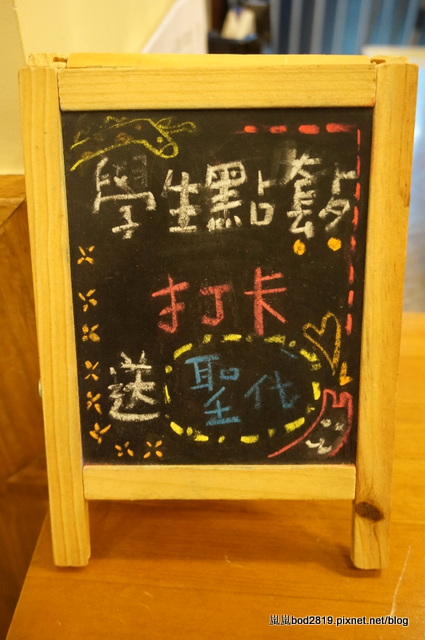 學生點套餐
打卡
送聖代
嵐嵐bod2819.pixnet.net/blog